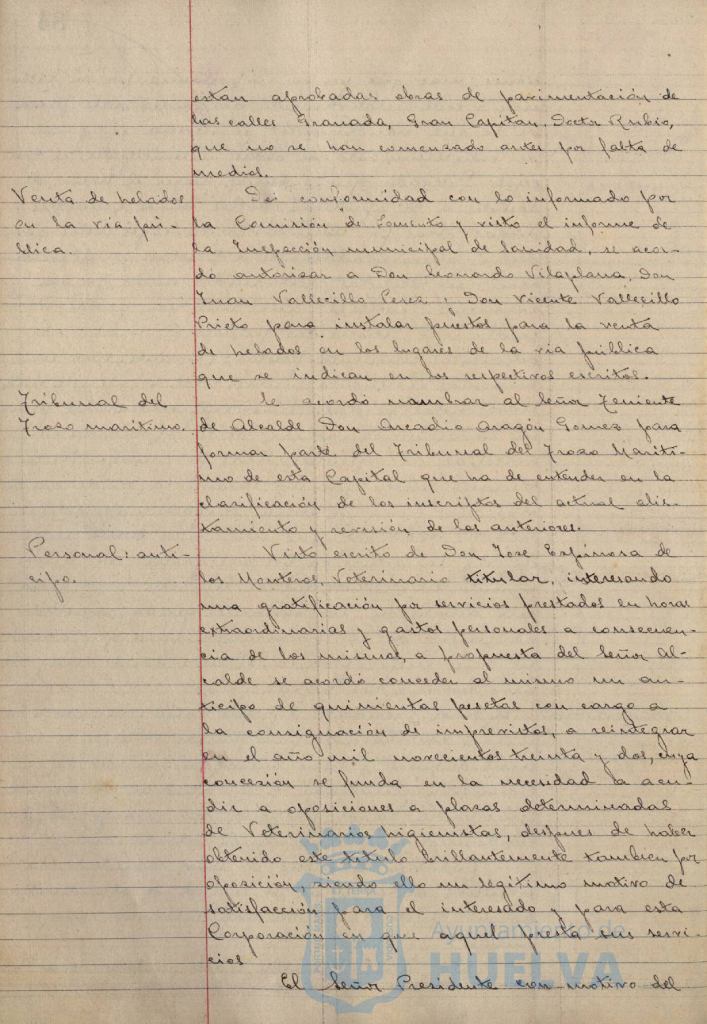 estan aprobadas obras de pavimentación de
las calles Granada, Gran Capitan, Doctor Rubio,
que no se han comenzado antes por falta de
medios.
Venta de helados
en la via pú-
blica.
De conformidad con lo informado por
la Comisión de Fomento y visto el informe de
la Inspección municipal de Sanidad, se acor-
dó autorizar a Don Leonardo Vilaplana, Don
Juan Vallecillo Perez y Don Vicente Vallecillo
Prieto para instalar puestos para la venta
de helados en los lugares de la via pública
que se indican en los respectivos escritos.
Tribunal del
Trozo maritimo.
Se acordó nombrar al Señor Teniente
de Alcalde Don Arcadio Aragón Gomez para
formar parte del Tribunal del Trozo Mariti-
mo de esta Capital que ha de entender en la
clasificación de los inscriptos del actual alis-
tamiento y revisión de los anteriores.
Personal: anti-
cipo.
Visto escrito de Don Jose Espinosa de
los Monteros, Veterinario titular, interesando
una gratificación por servicios prestados en horas
extraordinarias y gastos personales a consecuen-
cia de los mismos, a propuesta del Señor Al-
calde se acordó conceder al mismo un an-
ticipo de quinientas pesetas con cargo a
la consignación de imprevistos, a reintegrar
en el año mil novecientos treinta y dos, cuya
concesión se funda en la necesidad de acu-
dir a oposiciones a plazas determinadas
de Veterinarios higienistas, despues de haber
obtenido este titulo brillantemente tambien por
oposición, siendo ello un legitimo motivo de
satisfacción para el interesado y para esta
Corporación en que aquel presta sus servi-
cios
El Señor Presidente con motivo del
Ayuntamiento de
HUELVA